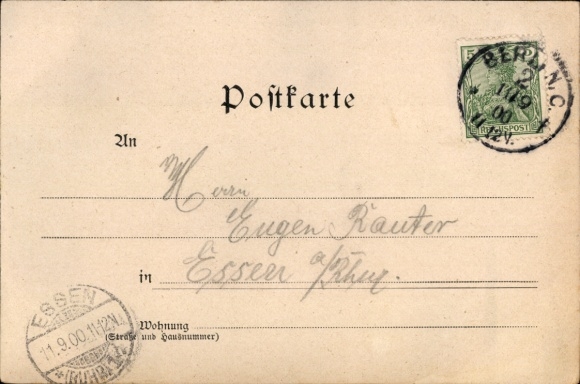 Postkarte
5
REICHSPOST
BERLIN.C.
2
9
00
11-12V.
An
Herrn
Eugen Rauter
in Essen a/Rhur.
ESSEN
11.9.00.11-12N.
*(RUHR)1
Wohnung
(Straße und Hausnummer)